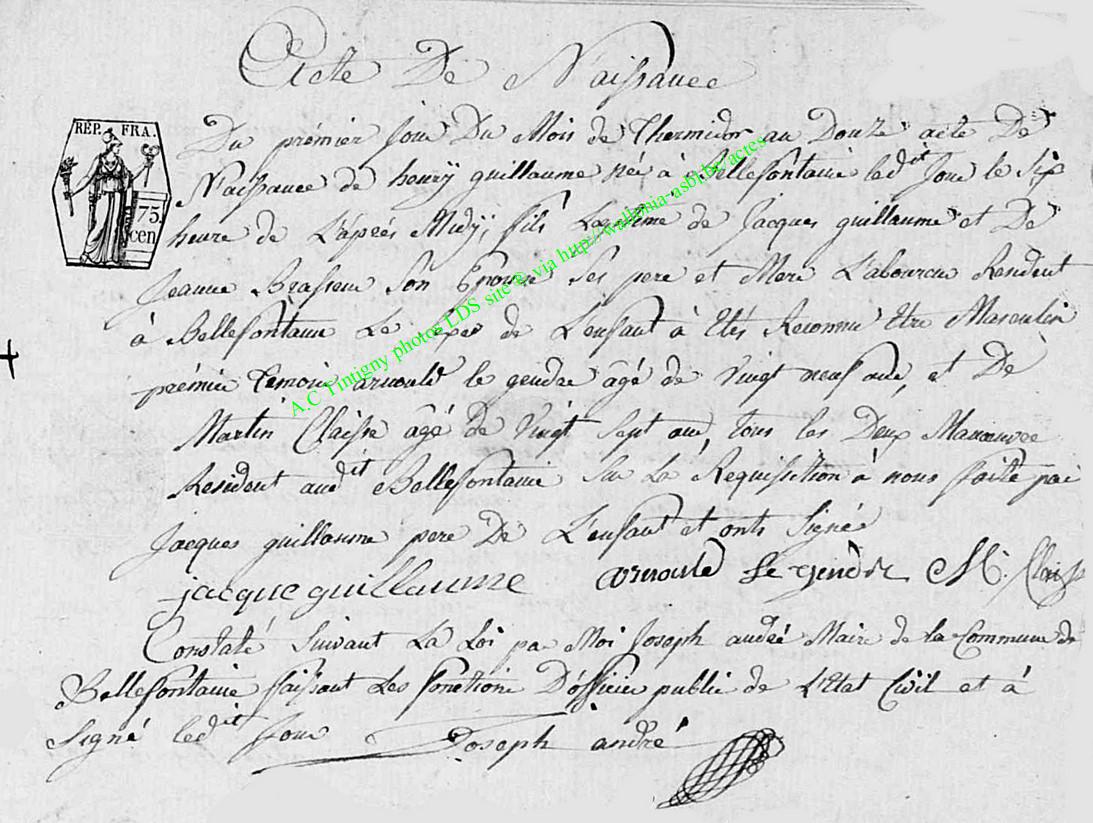 Acte De Naissance
REP. FRA.
75.
cen
Du prémier Jour Du Mois de Thermidor an Douze acte De
Naissance de henrÿ guillaume née à Bellefontaine led.it Jour le Six
heure de L'aprés Midÿ, fils Legitime de Jacques guillaume et De
Jeanne Brasseur Son Epouse Ses pere et Mere Laboureur Resident
à Bellefontaine Le Sexe de L'enfant à Etés Reconnu Etre Masculin
prémier temoin arnould le gendre âgé de vingt neuf ans, et De
Martin Claisse âgé De Vingt Sept ans, tous les Deux Manouvre
Resident aud.it Bellefontaine Sur La Requisition à nous faite par
Jacques guillaume pere De L'enfant et onts Signé
jacque guillaume arnould le gendre M. Claisse
Constaté Suivant La Loi par Moi Joseph andré Maire de la Commune de
Bellefontaine faisant Les fonctions D'officier public de L'Etat Civil et à
Signé led.it Jour Joseph andré
A.C Tintigny photos LDS site © via http://wallonia-asbl.be/actes